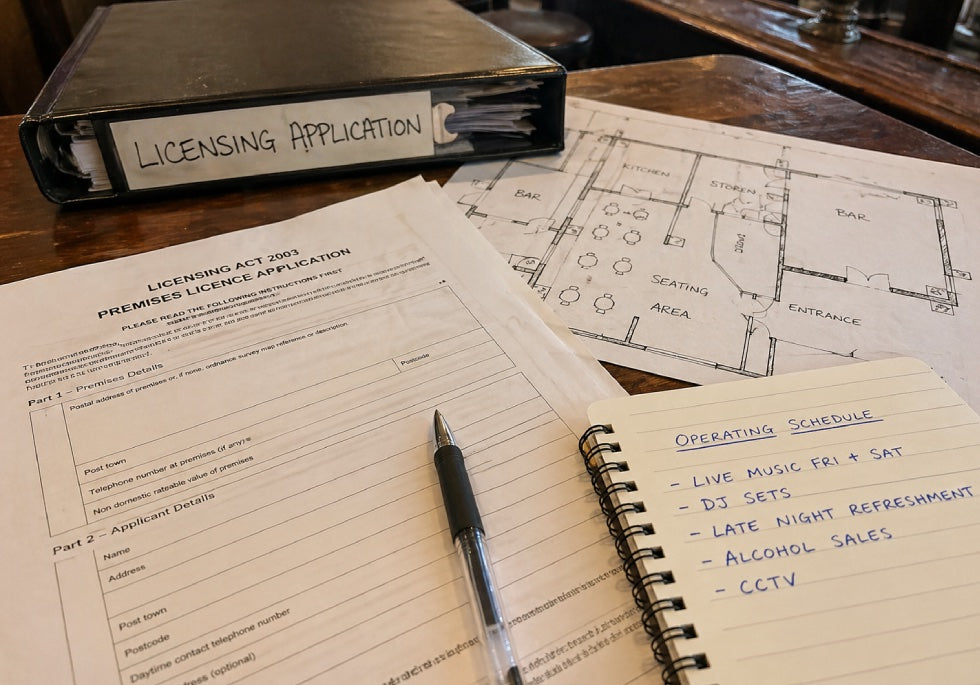 LICENSING APPLICATION
LICENSING ACT 2003
PREMISES LICENCE APPLICATION
PLEASE READ THE FOLLOWING INSTRUCTIONS FIRST
Part 1 – Premises Details
Postal address of premises or, if none, ordnance survey map reference or description
Post town
Postcode
Telephone number at premises (if any)
Non domestic rateable value of premises
Part 2 – Applicant Details
Name
Address
Post town
Postcode
Daytime contact telephone number
(optional)
BAR
KITCHEN
BAR
SEATING
AREA
ENTRANCE
OPERATING SCHEDULE
- LIVE MUSIC FRI + SAT
- DJ SETS
- LATE NIGHT REFRESHMENT
- ALCOHOL SALES
- CCTV